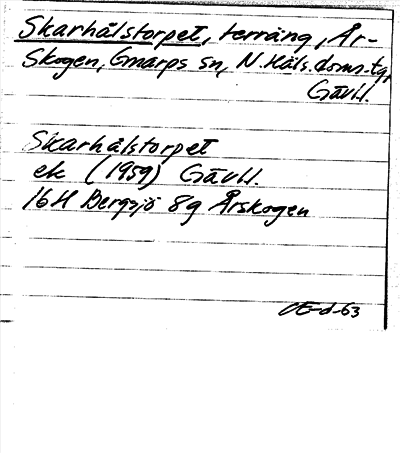 Skarhålstorpet, terräng, År-
Skogen, Gnarps sn, N. Häls. doms.-tg,
Gävl.
Skarhålstorpet
ek (1959) Gävl.
16H Bergsjö 8g Årskogen
OE-d-63